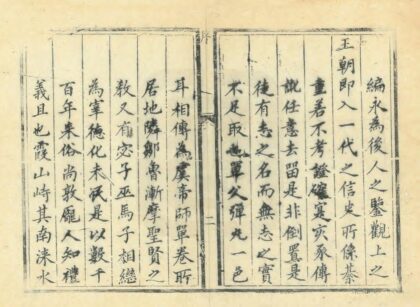 編永為後人之鑒觀上之
王朝即入一代之信史所係綦
重若不考證確寔亥豕傳
訛任意去留是非倒置是
徒有志之名而無志之實
不足取也單父彈丸一邑
二
耳相傳為虞帝師單卷所
居地隣鄒魯漸摩聖賢之
教又有宓子巫馬子相繼
為宰德化未泯是以數千
百年来俗尚敦龐人知禮
義且也霞山峙其南涞水